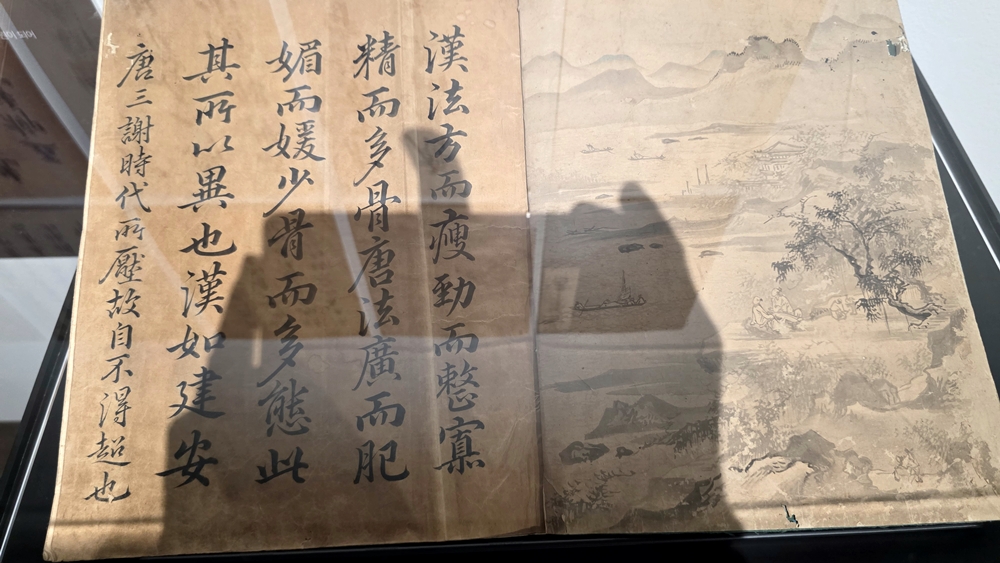 漢法方而瘦勁而整寡
精而多骨唐法廣而肥
媚而媛少骨而多態此
其所以異也漢如建安
唐三謝時代所壓故自不得超也